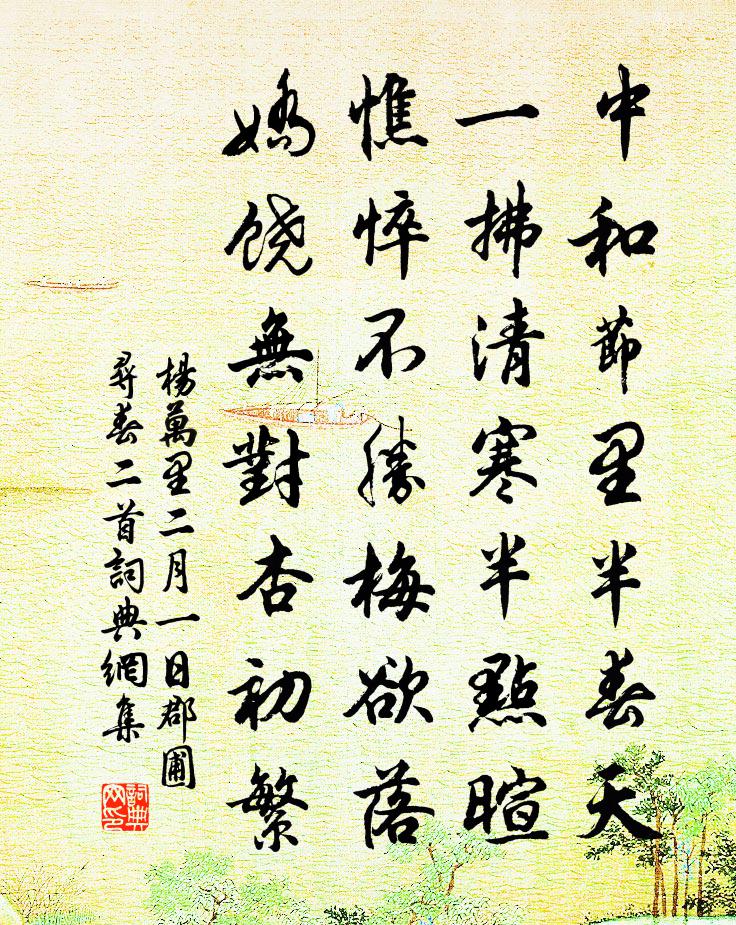 中和節里半春天
一拂清寒半點暄
憔悴不勝梅欲落
嬌饶無對杏初繁
楊萬里二月一日郡圃
尋春二首詞典網集
詞典网印